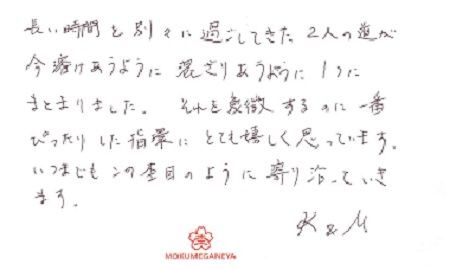 長い時間を別々に過ごしてきた2人の道が
今溶けあうように混ざりあうように1つに
まとまりました。それを象徴するのに一番
ぴったりした指環にとても嬉しく思っています。
いつまでもこの杢目のように寄り沿っていき
ます。
K & M
MOKUMEGANEYA